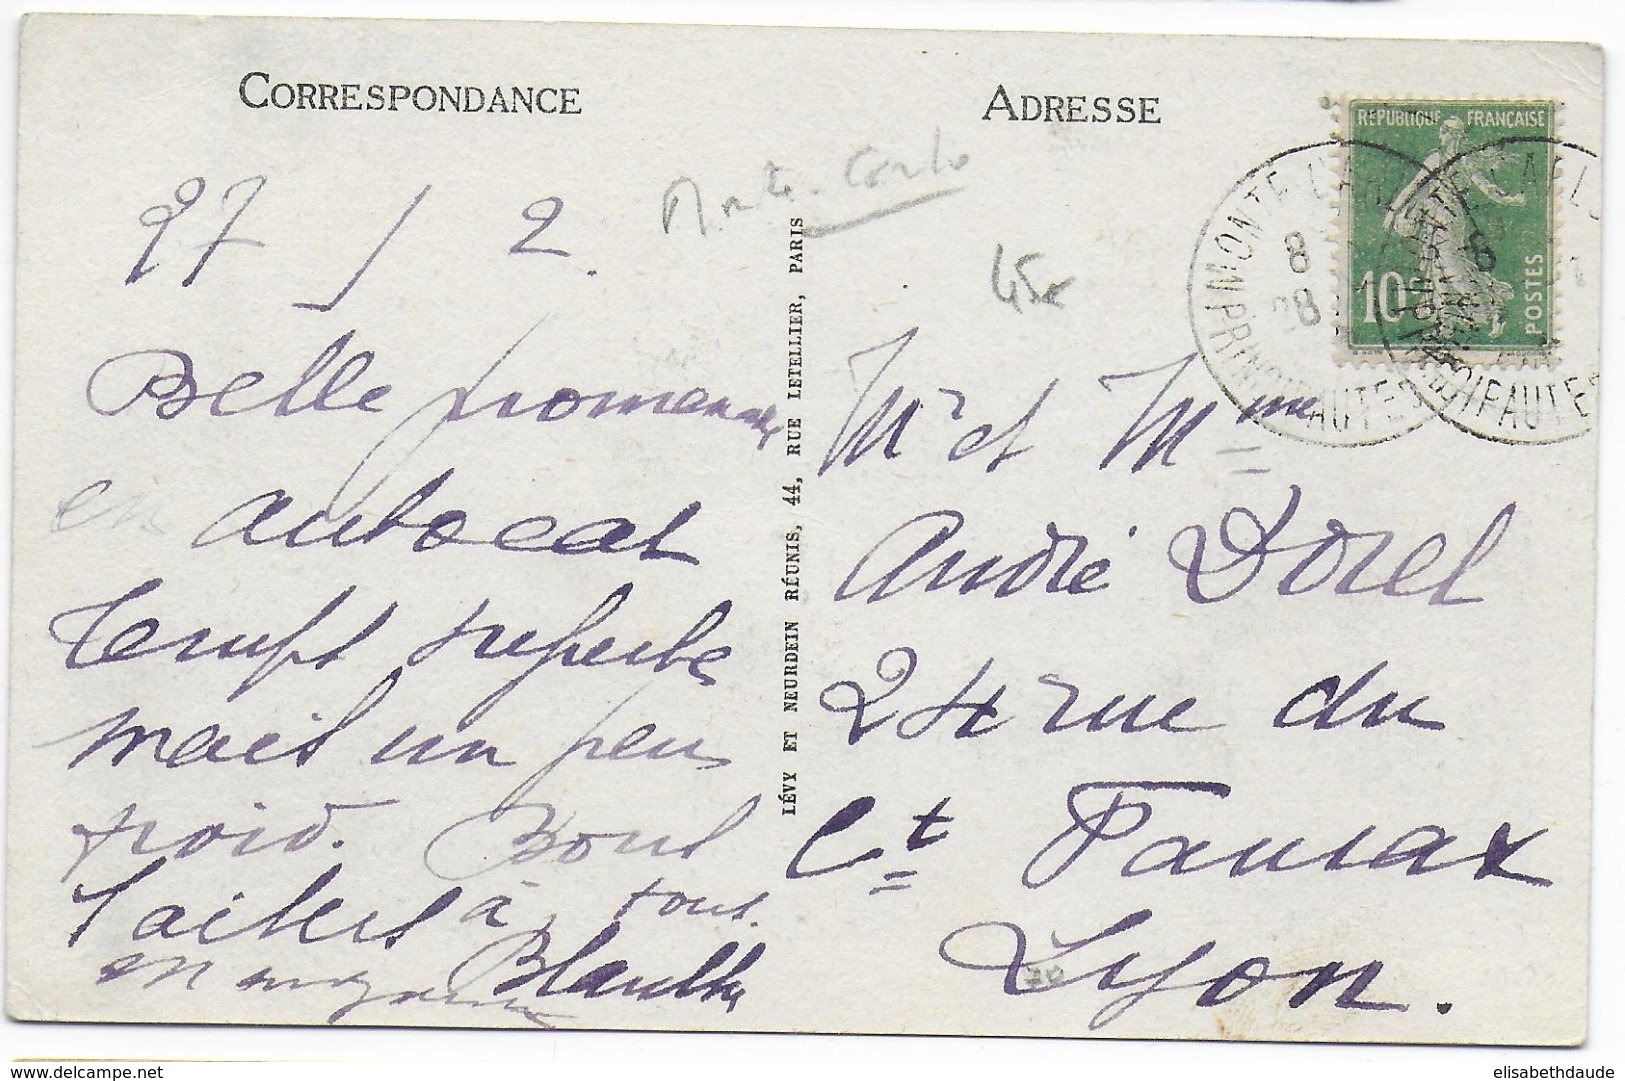 CORRESPONDANCE
27 / 2.
Belle promenade
en autocar
temps superbe
mais un peu
froid. Bons
baisers à tous.
Blanche
LÉVY ET NEURDEIN RÉUNIS, 44, RUE LETELLIER, PARIS
ADRESSE
Monte-Carlo
45€
RÉPUBLIQUE FRANÇAISE
10c
POSTES
MONTE CARLO
8
28
PRINCIPAUTE
Mr et Mme
André Dorel
24 rue du
Ct Faurax
Lyon.
elisabethdaude
delcampe.net